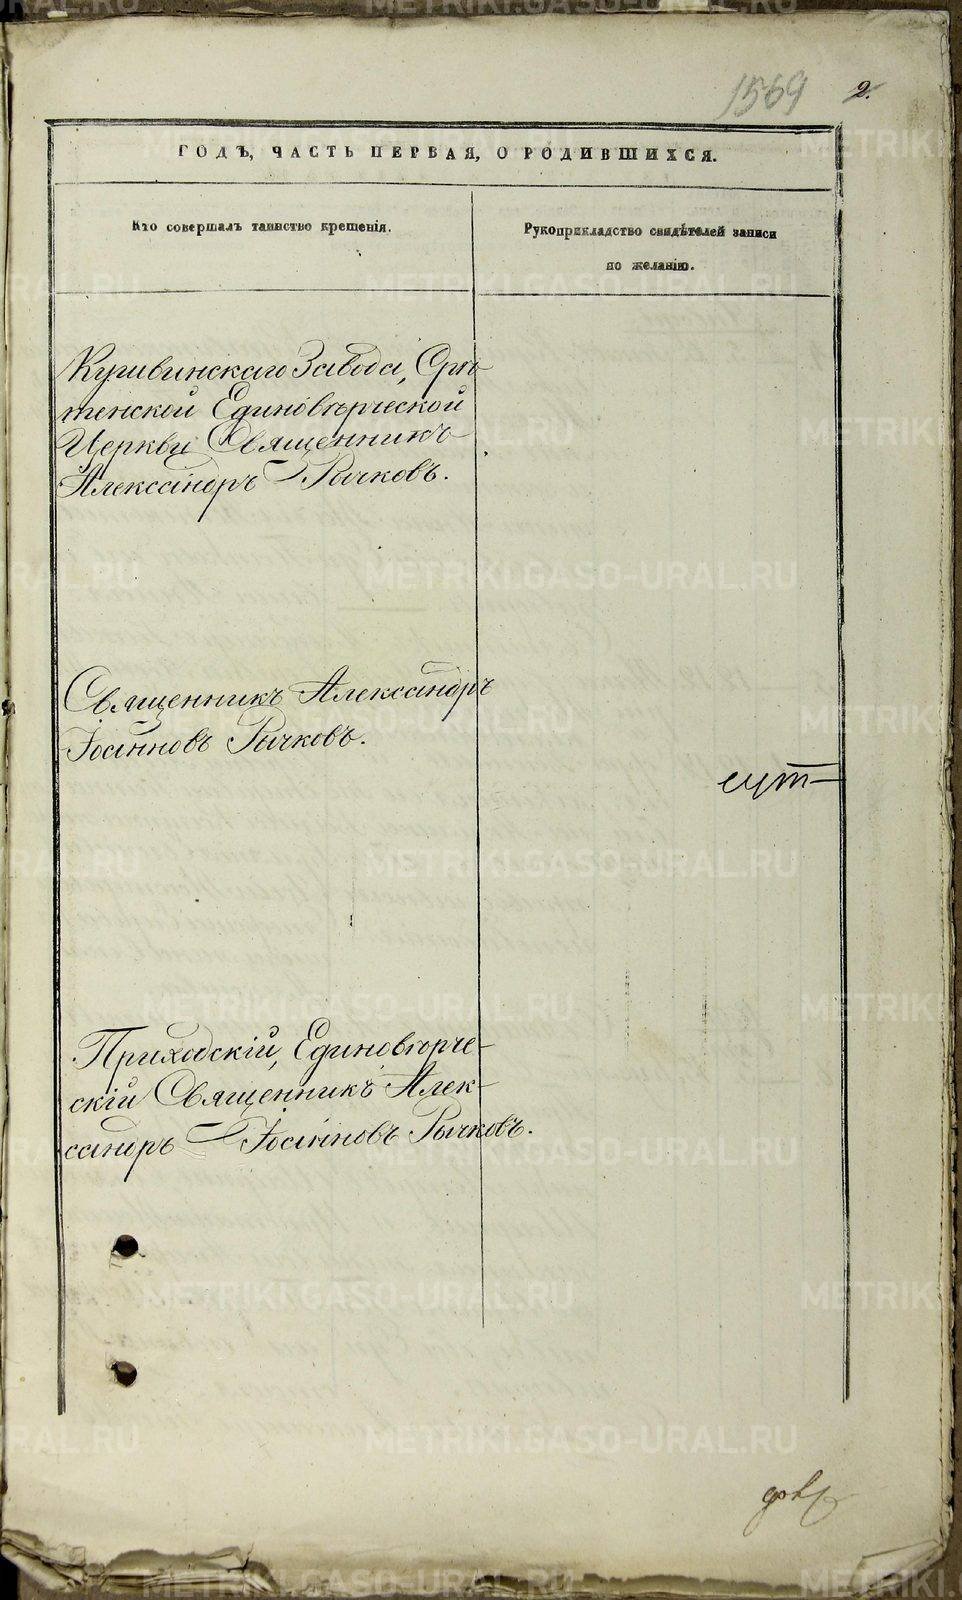 1569 2.
ГОДЪ, ЧАСТЬ ПЕРВАЯ, О РОДИВШИХСЯ.
Кто совершалъ таинство крещенія.
Рукоприкладство свидѣтелей записи
по желанію.
Кушвинскаго Завода, Срѣ-
тенской Единовѣрческой
Церкви Священникъ
Александръ Рычковъ.
Священникъ Александръ
Іоанновъ Рычковъ.
Приходскій, Единовѣрче-
скій Священникъ Алек-
сандръ Іоанновъ Рычковъ.
METRIKI.GASO-URAL.RU